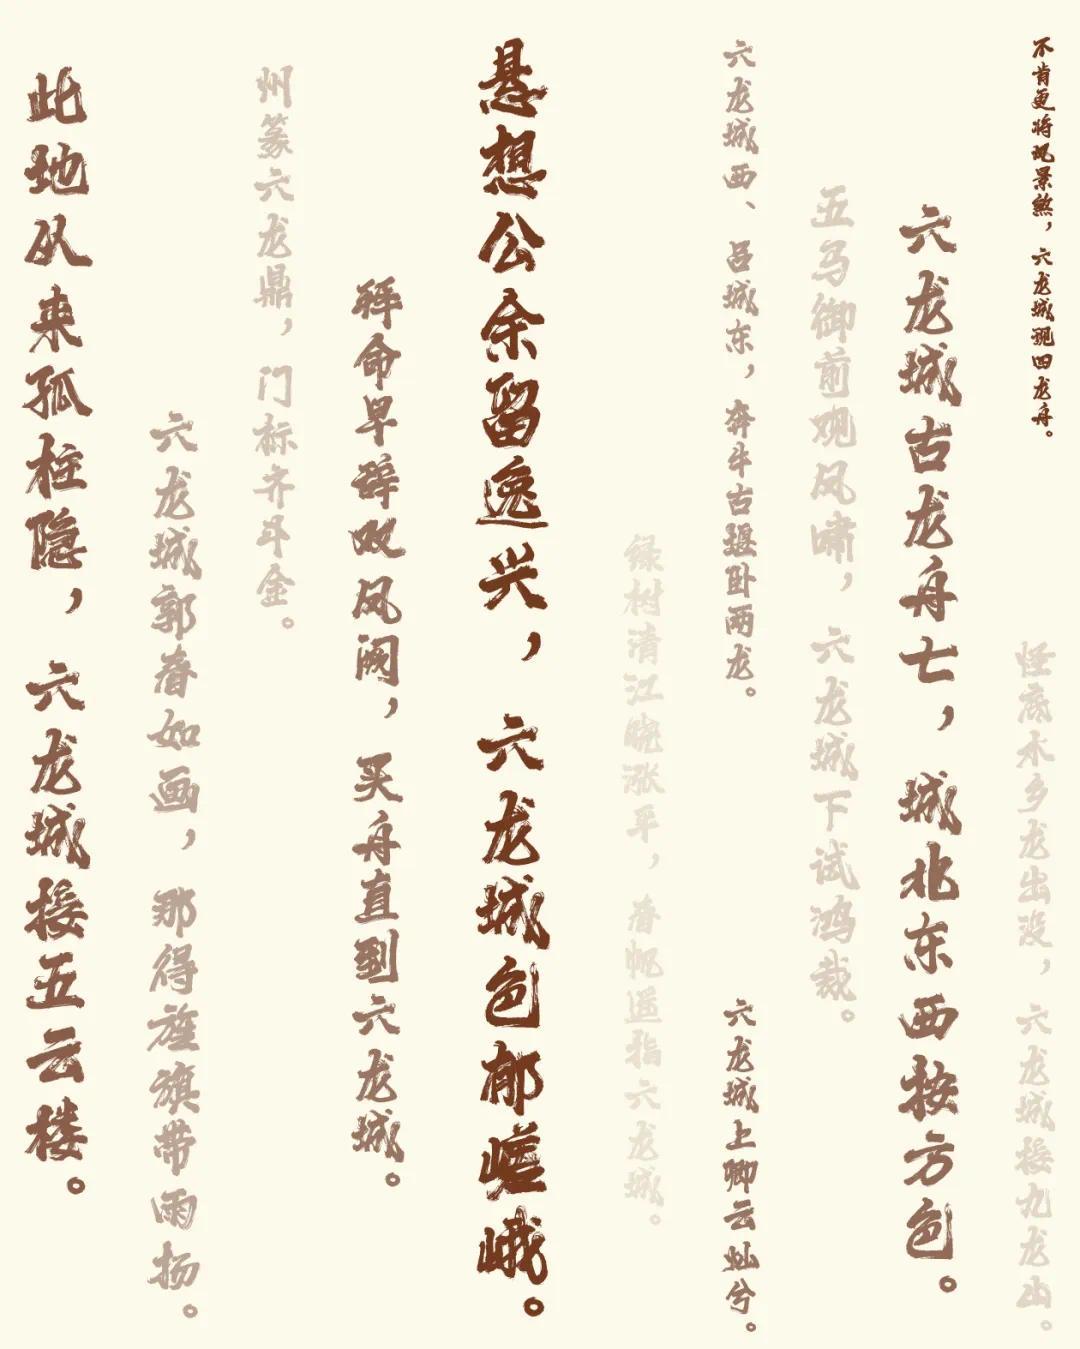 不肯更将风景煞，六龙城现四龙舟。
怪底水乡龙出没，六龙城接九龙山。
六龙城古龙舟七，城北东西按方色。
五马御前观风啸，六龙城下试鸿裁。
六龙城西、吕城东，奔牛古堰卧两龙。
六龙城上卿云灿兮。
绿树清江晓涨平，春帆遥指六龙城。
悬想公余留逸兴，六龙城色郁嵯峨。
拜命早辞双凤阙，买舟直到六龙城。
州篆六龙鼎，门标齐斗金。
六龙城郭春如画，那得旌旗带雨扬。
此地从来孤柱隐，六龙城接五云楼。